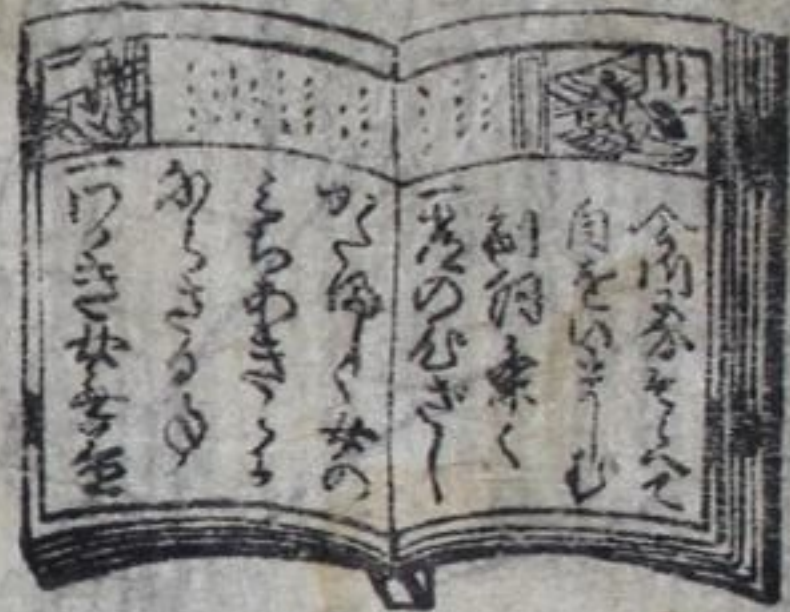 今川なぞらへて
自をいましむ
制詞条々
一常の心ざし
かだましく女の
みちあきらか
ならざる事
一わかき女無益